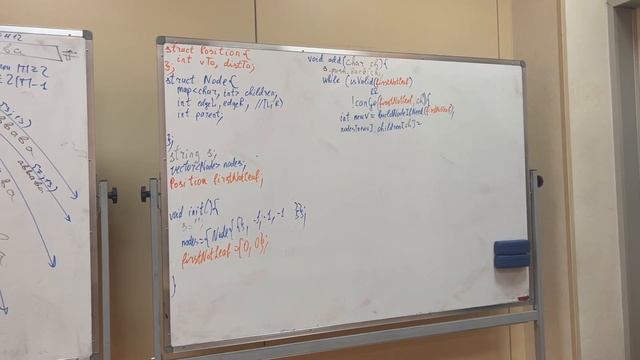 struct Position {
int vTo, distTo;
};
struct Node {
map<char, int> children;
int edgeL, edgeR; //[L;R)
int parent;
};
string s;
vector<Node> nodes;
Position firstNotLeaf;
void init(){
s="";
nodes={Node{{}, -1, -1, -1 }};
firstNotLeaf={0, 0};
}
void add(char ch){
s.push_back(ch);
while (isValid(firstNotLeaf)
&&
!canGo(firstNotLeaf, ch)){
int newV = buildNodeIfNeed(firstNotLeaf);
nodes[newV].children[ch]=